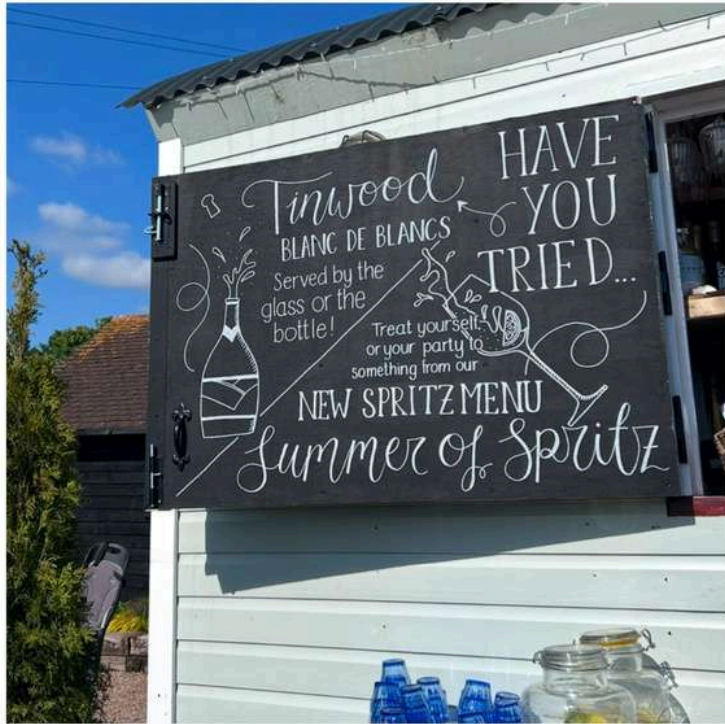 Tinwood
BLANC DE BLANCS
Served by the
glass or the
bottle!
HAVE
YOU
TRIED...
Treat yourself
or your party to
something from our
NEW SPRITZ MENU
Summer of Spritz